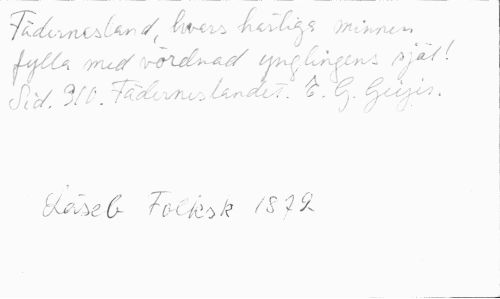 Fädernesland, hvars härliga minnen
fylla med vördnad ynglingens själ!
Sid. 310. Fäderneslandet. E. G. Geijer.
Läseb Folksk 1872